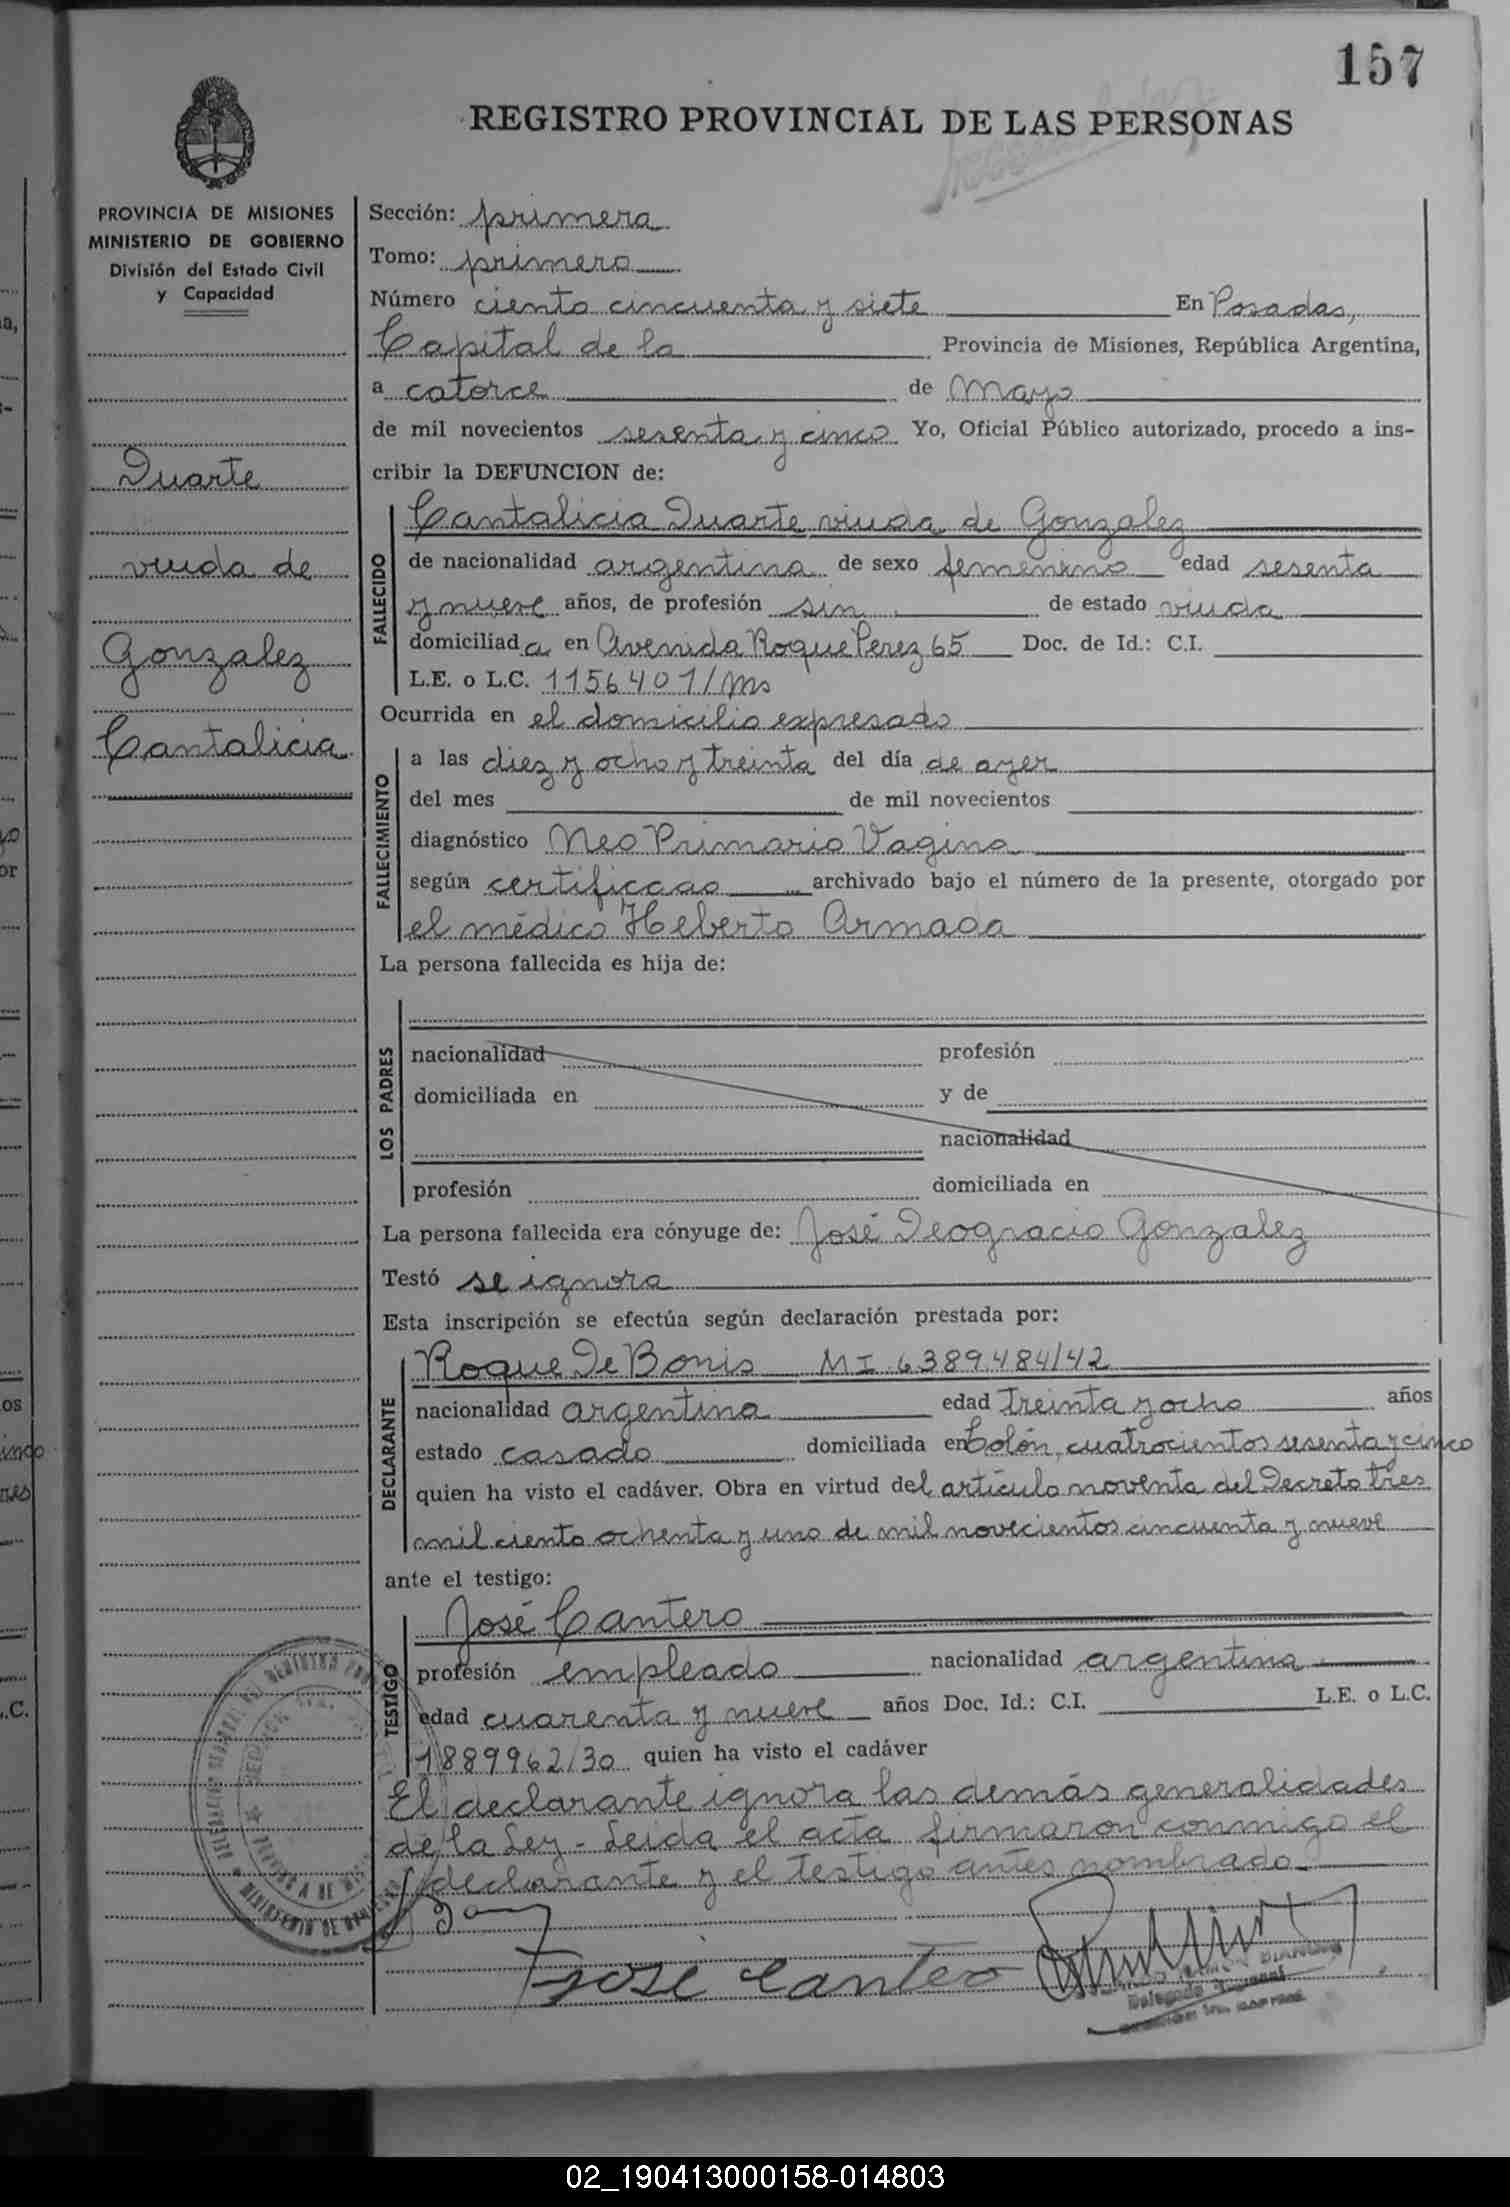 157
REGISTRO PROVINCIAL DE LAS PERSONAS
PROVINCIA DE MISIONES
MINISTERIO DE GOBIERNO
División del Estado Civil
y Capacidad
Duarte
viuda de
Gonzalez
Cantalicia
Sección: primera
Tomo: primero
Número ciento cincuenta y siete En Posadas,
Capital de la Provincia de Misiones, República Argentina,
a catorce de Mayo
de mil novecientos sesenta y cinco Yo, Oficial Público autorizado, procedo a ins-
cribir la DEFUNCION de:
FALLECIDO
Cantalicia Duarte viuda de Gonzalez
de nacionalidad argentina de sexo femenino edad sesenta
y nueve años, de profesión sin de estado viuda
domiciliada en Avenida Roque Perez 65 Doc. de Id.: C.I.
L.E. o L.C. 1156401/ms
Ocurrida en el domicilio expresado
FALLECIMIENTO
a las diez y ocho y treinta del día de ayer
del mes de mil novecientos
diagnóstico Neo Primario Vagina
según certificado archivado bajo el número de la presente, otorgado por
el médico Heberto Armada
La persona fallecida es hija de:
LOS PADRES
nacionalidad profesión
domiciliada en y de
nacionalidad
profesión domiciliada en
La persona fallecida era cónyuge de: José Deogracio Gonzalez
Testó se ignora
Esta inscripción se efectúa según declaración prestada por:
DECLARANTE
Roque De Bonis MI 6389484/42
nacionalidad argentina edad treinta y ocho años
estado casado domiciliada en Colón, cuatrocientos sesenta y cinco
quien ha visto el cadáver. Obra en virtud del artículo noventa del Decreto tres
mil ciento ochenta y uno de mil novecientos cincuenta y nueve
ante el testigo:
TESTIGO
José Cantero
profesión empleado nacionalidad argentina
edad cuarenta y nueve años Doc. Id.: C.I. L.E. o L.C.
1889962/30 quien ha visto el cadáver
El declarante ignora las demás generalidades
de la Ley - Leida el acta firmaron conmigo el
declarante y el testigo antes nombrado
José Cantero
02_190413000158-014803